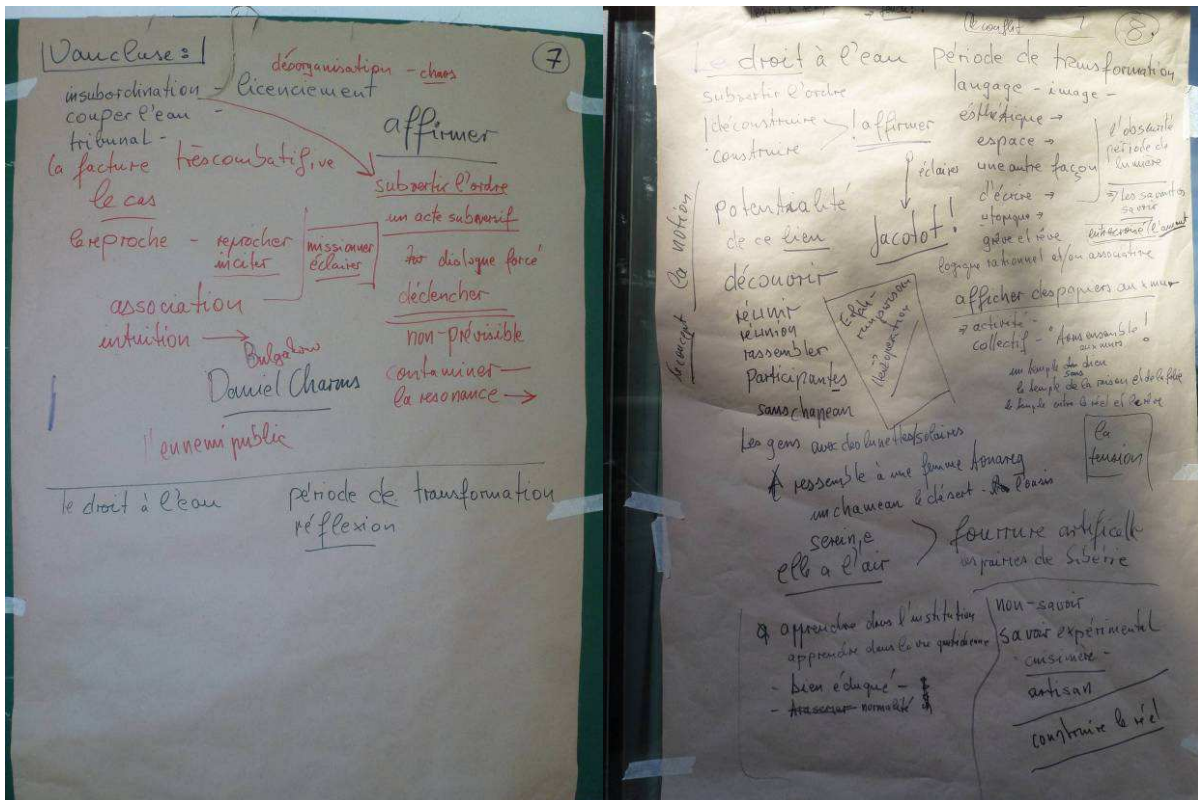 Vaucluse :
7
désorganisation - chaos
insubordination - licenciement
couper l'eau -
tribunal -
affirmer
la facture très combatif, ve
le cas
subvertir l'ordre
un acte subversif
la reproche - reprocher
inciter
missionner
éclairer
dialogue forcé
déclencher
association
non-prévisible
intuition →
Bulgakow
Daniel Charms
contaminer —
la resonance →
l'ennemi public
le droit à l'eau période de transformation
réflexion
le conflit
8.
Le droit à l'eau période de transformation
langage - image -
subvertir l'ordre
déconstruire
construire
l'affirmer
éclairer
Jacotot!
esthétique →
espace →
une autre façon
d'écrire →
utopique →
grève et rêve
logique rationnel et/ou associative
l'obscurité
période de
lumière
la notion
le concept
potentialité
de ce lieu
découvrir
réunir
réunion
rassembler
participantes
sans chapeau
afficher des papiers aux murs
→ activité -
collectif -
le temple de la raison et de la folie
la
tension
Les gens avec des lunettes/solaires
ressemble à une femme touareg
un chameau le désert -
serein, e
elle a l'air
fourrure artificielle
de Sibérie
apprendre dans l'institution
apprendre dans la vie quotidienne
- bien éduqué -
- normalité
non-savoir
savoir expérimental
cuisinière -
artisan
construire le réel